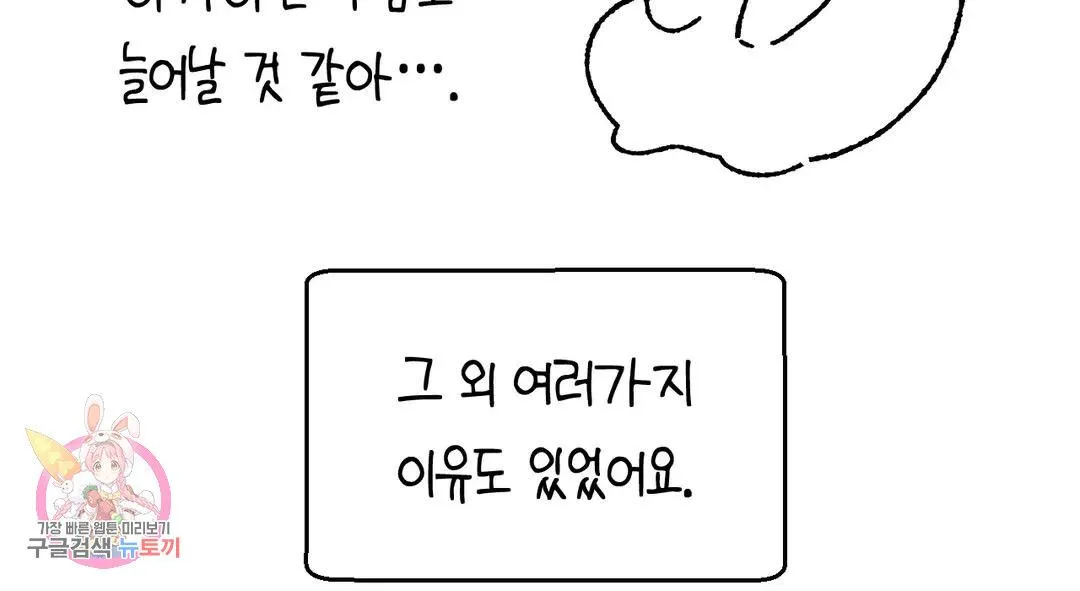 늘어날 것 같아….
그 외 여러가지
이유도 있었어요.
가장 빠른 웹툰 미리보기
구글검색 뉴토끼